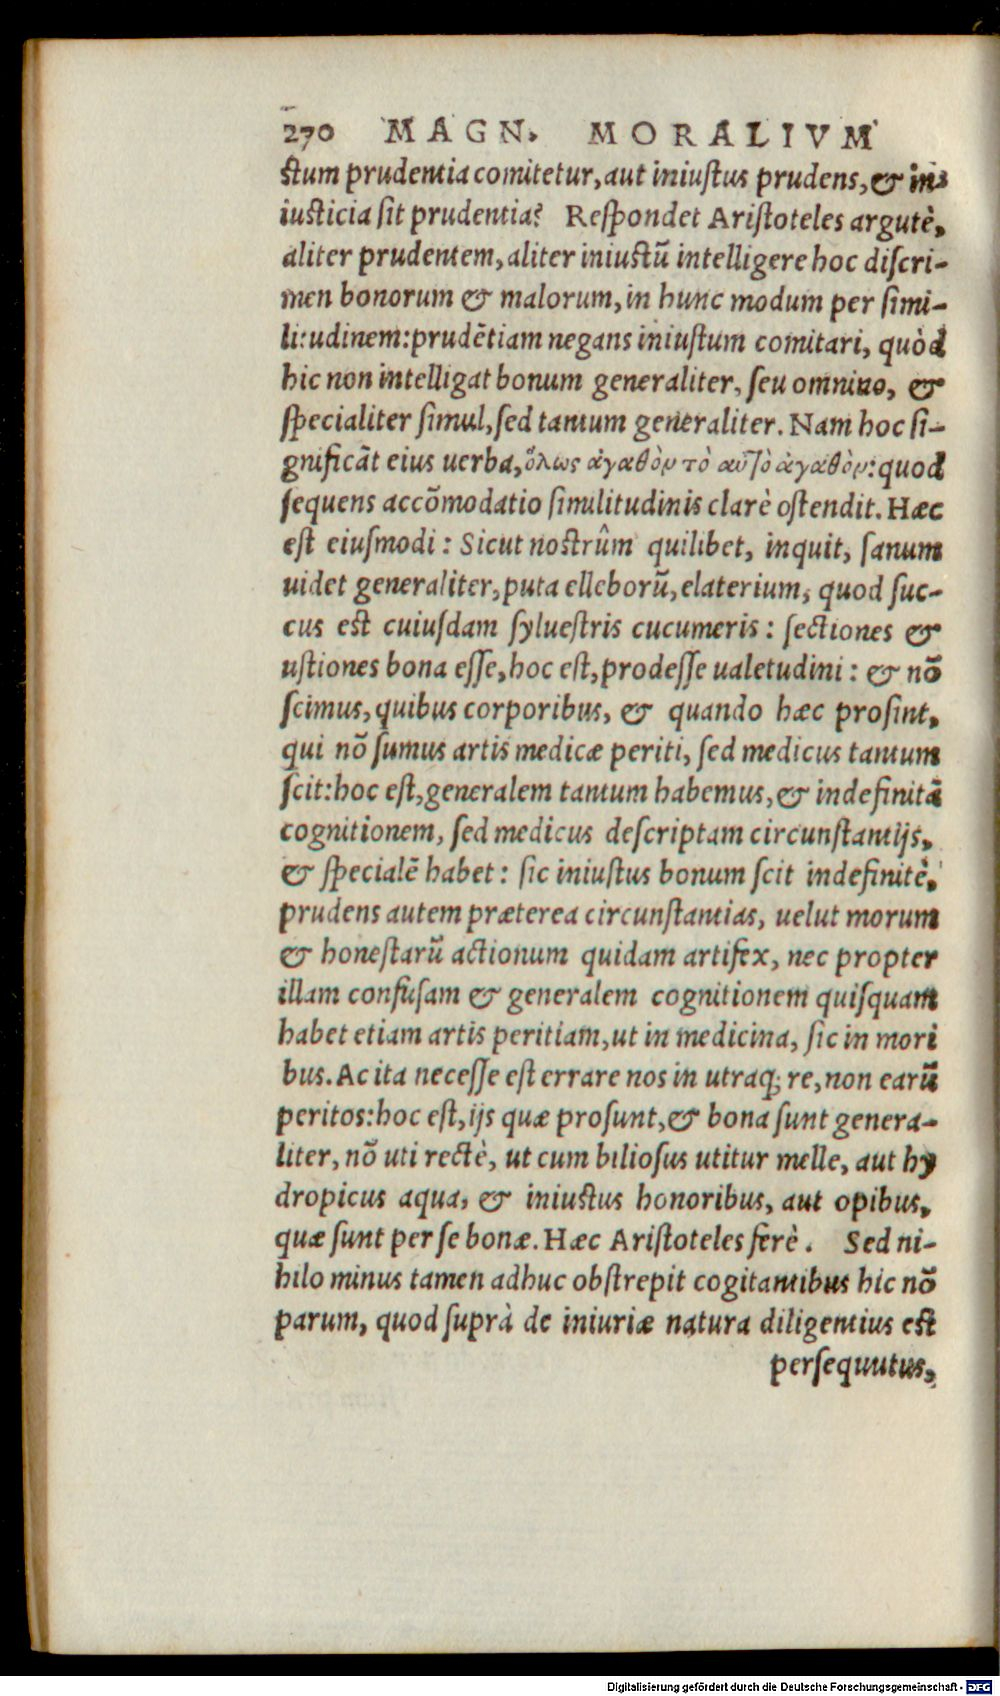 270 MAGN. MORALIVM
ctum prudentia comitetur, aut iniustus prudens, & in-
iusticia sit prudentia? Respondet Aristoteles argutè,
aliter prudentem, aliter iniustũ intelligere hoc discri-
men bonorum & malorum, in hunc modum per simi-
litudinem: prudẽtiam negans iniustum comitari, quòd
hic non intelligat bonum generaliter, seu omnino, &
specialiter simul, sed tantum generaliter. Nam hoc si-
gnificãt eius uerba, ὅλως ἀγαθὸν τὸ αὐτὸ ἀγαθὸν: quod
sequens accõmodatio similitudinis clarè ostendit. Hæc
est eiusmodi: Sicut nostrûm quilibet, inquit, sanum
uidet generaliter, puta elleborũ, elaterium, quod suc-
cus est cuiusdam syluestris cucumeris: sectiones &
ustiones bona esse, hoc est, prodesse ualetudini: & nõ
scimus, quibus corporibus, & quando hæc prosint,
qui nõ sumus artis medicæ periti, sed medicus tantum
scit: hoc est, generalem tantum habemus, & indefinitã
cognitionem, sed medicus descriptam circunstantijs,
& specialẽ habet: sic iniustus bonum scit indefinitè,
prudens autem præterea circunstantias, uelut morum
& honestarũ actionum quidam artifex, nec propter
illam confusam & generalem cognitionem quisquam
habet etiam artis peritiam, ut in medicina, sic in mori
bus. Ac ita necesse est errare nos in utraq; re, non earũ
peritos: hoc est, ijs quæ prosunt, & bona sunt genera-
liter, nõ uti rectè, ut cum biliosus utitur melle, aut hy
dropicus aqua, & iniustus honoribus, aut opibus,
quæ sunt per se bonæ. Hæc Aristoteles ferè. Sed ni-
hilo minus tamen adhuc obstrepit cogitantibus hic nõ
parum, quod suprà de iniuriæ natura diligentius est
persequutus,
Digitalisierung gefördert durch die Deutsche Forschungsgemeinschaft - DFG